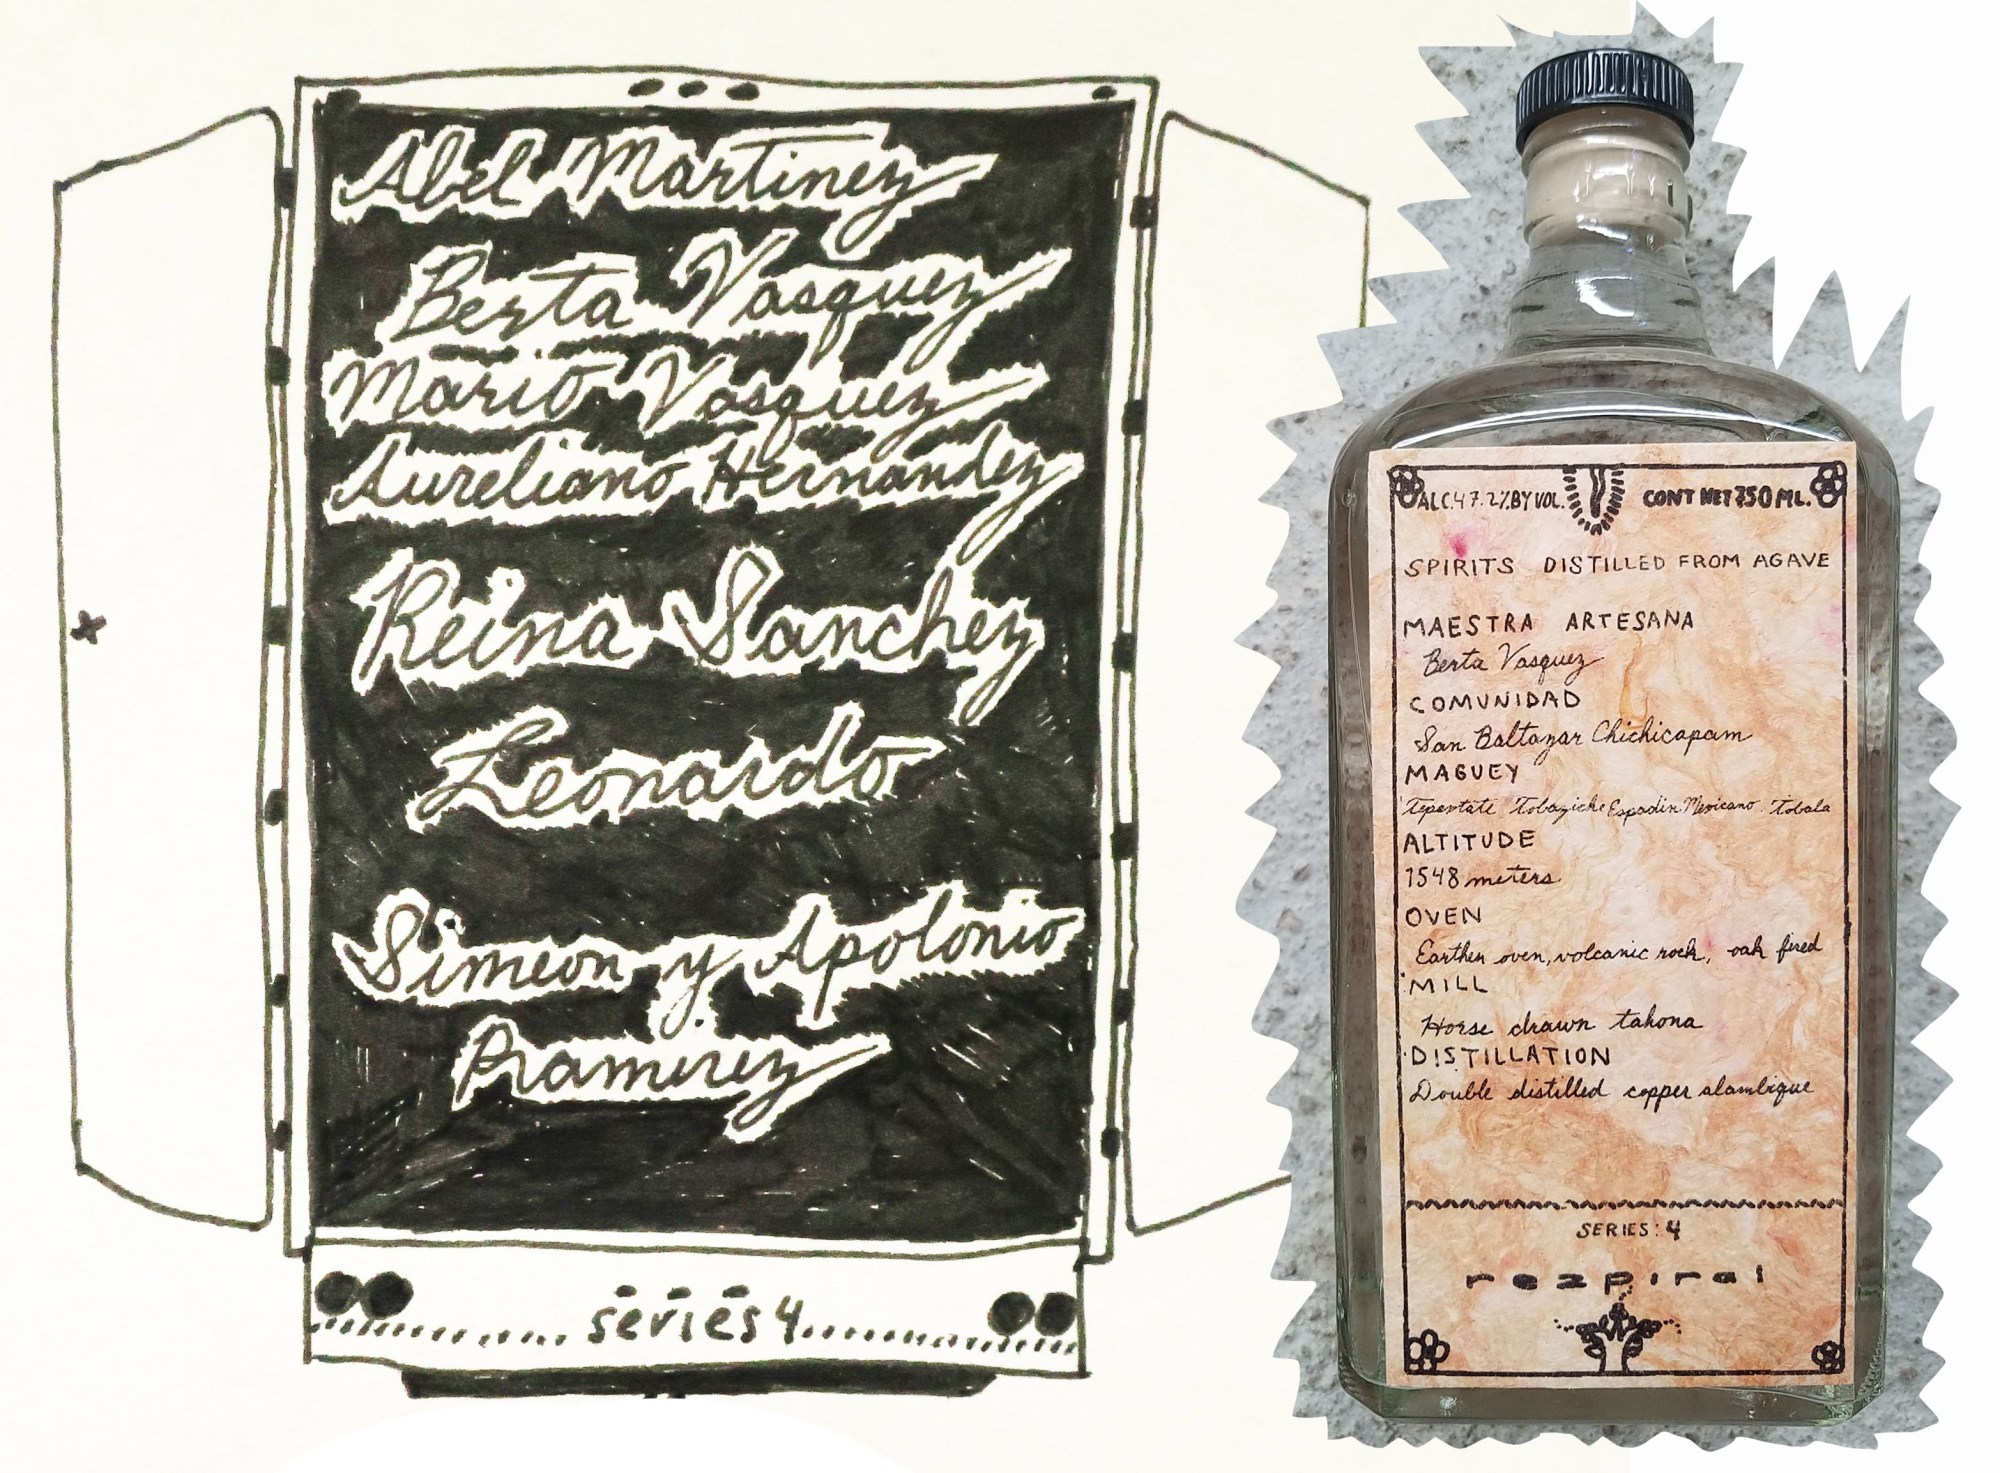 Abel Martinez
Berta Vasquez
Mario Vasquez
Aureliano Hernandez
Reina Sanchez
Leonardo
Simeon y Apolonio
Ramirez
series 4
ALC.47.2%BY VOL. CONT NET 750 ML.
SPIRITS DISTILLED FROM AGAVE
MAESTRA ARTESANA
Berta Vasquez
COMUNIDAD
San Baltazar Chichicapam
MAGUEY
Tepextate Tobaziche Espadin Mexicano Tobala
ALTITUDE
1548 meters
OVEN
Earthen oven, volcanic rock, oak fired
MILL
Horse drawn tahona
DISTILLATION
Double distilled copper alambique
SERIES: 4
rezpiral